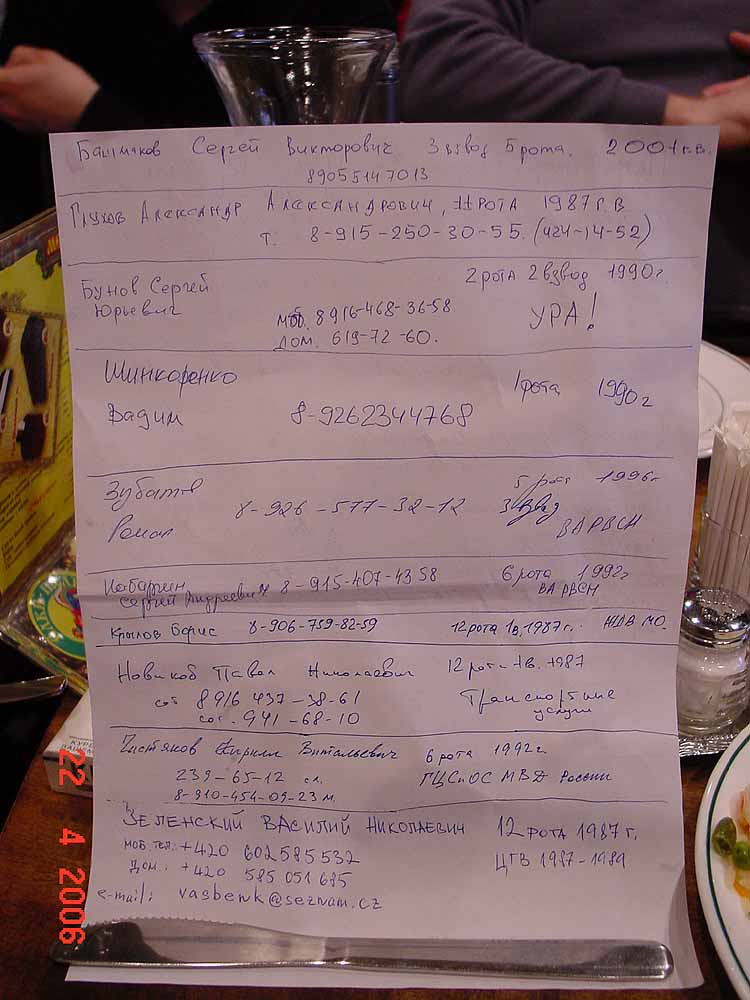 Башмаков Сергей Викторович 3 взвод 5 рота. 2001 г.в.
89055147013
Глухов Александр Александрович, 11 рота 1987 г.в
т. 8-915-250-30-55. (424-14-52)
Бунов Сергей 2 рота 2 взвод 1990г.
Юрьевич УРА!
моб. 8916-468-36-58
дом. 619-72-60.
Шинкоренко 1 рота 1990г
Вадим 8-9262344768
Зубатов 5 рота 1996г
Роман 8-926-577-32-12 3 взвод
ВА РВСН
Сергей Андреевич 8-915-407-4358 6 рота 1992г
ВА РВСН
Крылов Борис 8-906-759-82-59 12 рота 1в. 1987г. ЖДВ МО.
Новиков Павел Николаевич 12 рота 1в. 1987
сот 8916 437-38-61 Транспортные
сот. 941-68-10 услуги
Чистяков Кирилл Витальевич 6 рота 1992г.
239-65-12 сл. ГЦСиОС МВД России
8-910-454-09-23 м.
Зеленский Василий Николаевич 12 рота 1987 г.
моб. тел.: +420 602585532 ЦГВ 1987-1989
дом.: +420 585 051 685
e-mail: vasbenk@seznam.cz
22 4 2006